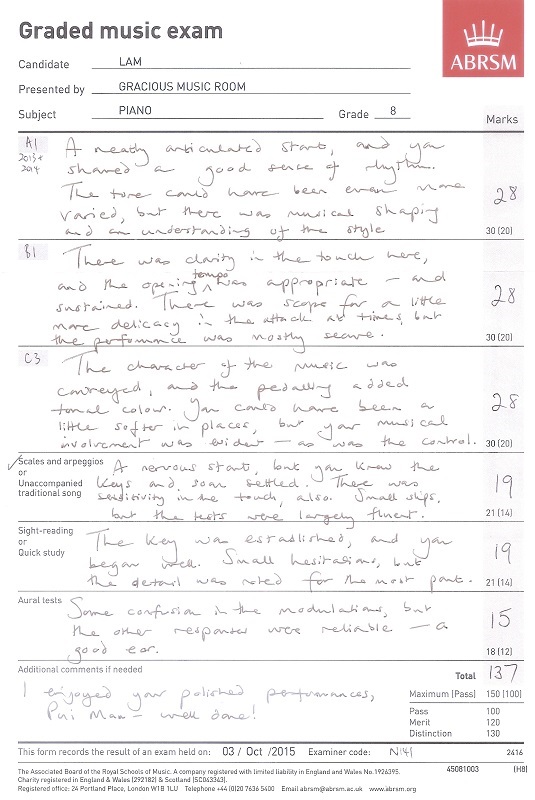 Graded music exam
ABRSM
Candidate LAM
Presented by GRACIOUS MUSIC ROOM
Subject PIANO Grade 8
Marks
A1
2013+
2014
A neatly articulated start, and you
showed a good sense of rhythm.
The tone could have been even more
varied, but there was musical shaping
and an understanding of the style
28
30 (20)
B1
There was clarity in the touch here,
and the opening tempo was appropriate – and
sustained. There was scope for a little
more delicacy in the attack at times, but
the performance was mostly secure.
28
30 (20)
C3
The character of the music was
conveyed, and the pedalling added
tonal colour. You could have been a
little softer in places, but your musical
involvement was evident – as was the control.
28
30 (20)
Scales and arpeggios
or
Unaccompanied
traditional song
A nervous start, but you know the
keys and soon settled. There was
sensitivity in the touch, also. Small slips,
but the tests were largely fluent.
19
21 (14)
Sight-reading
or
Quick study
The key was established, and you
began well. Small hesitations, but
the detail was noted for the most part.
19
21 (14)
Aural tests
Some confusion in the modulations, but
the other responses were reliable – a
good ear.
15
18 (12)
Additional comments if needed
I enjoyed your polished performances,
Pui Man – well done!
Total 137
Maximum (Pass) 150 (100)
Pass 100
Merit 120
Distinction 130
This form records the result of an exam held on: 03 / Oct / 2015 Examiner code: N141 2416
The Associated Board of the Royal Schools of Music. A company registered with limited liability in England and Wales No.1926395.
Charity registered in England & Wales (292182) & Scotland (SC043363).
Registered office: 24 Portland Place, London W1B 1LU Telephone +44 (0)20 7636 5400 Email abrsm@abrsm.ac.uk www.abrsm.org
45081003 (H8)